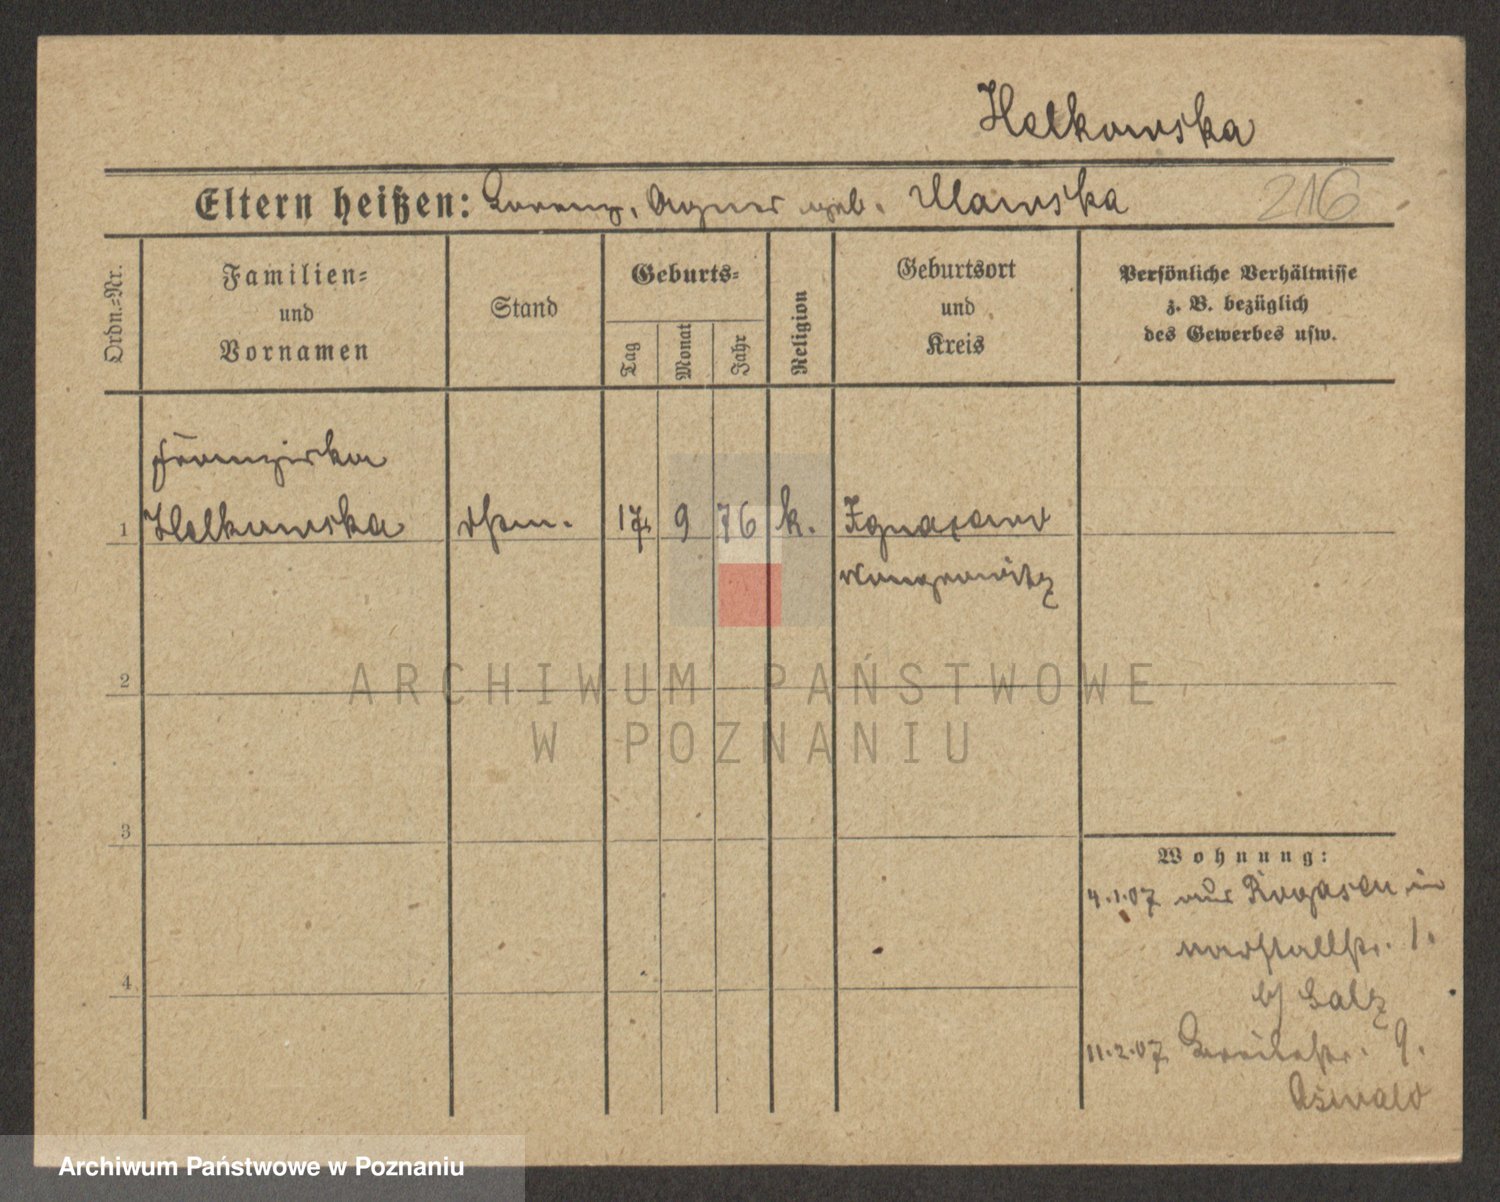 Helkowska
Eltern heißen: Lorenz, Agnes geb. Ulawska
216
Ordn.-Nr.
Familien-
und
Vornamen
Stand
Geburts-
Tag
Monat
Jahr
Religion
Geburtsort
und
Kreis
Persönliche Verhältnisse
z. B. bezüglich
des Gewerbes usw.
Franziska
1 Helkowska 17. 9 76 k. Ignacowo
Wongrowitz
2
3
4
Wohnung:
4.1.07 aus Rogasen in
Marstallstr. 1.
b/ Salz
11.2.07 Breitestr. 9.
Oswald
ARCHIWUM PAŃSTWOWE
W POZNANIU
Archiwum Państwowe w Poznaniu